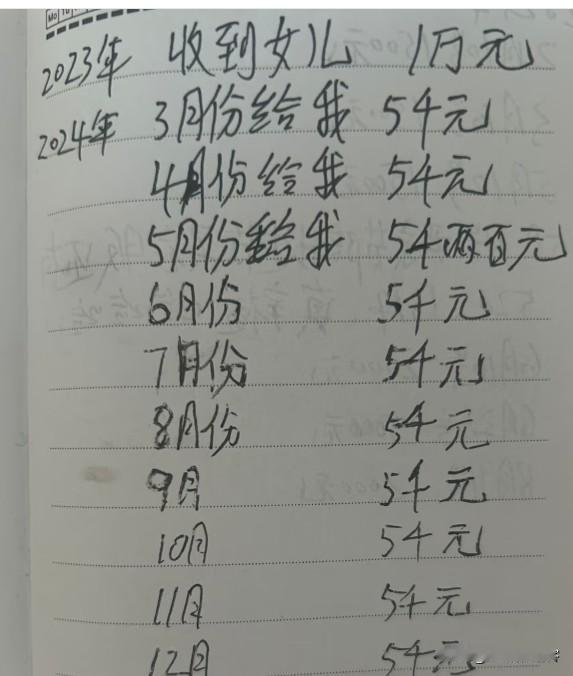 2023年 收到女儿 1万元
2024年 3月份给我 54元
4月份给我 54元
5月份给我 54两百元
6月份 54元
7月份 54元
8月份 54元
9月 54元
10月 54元
11月 54元
12月 54元